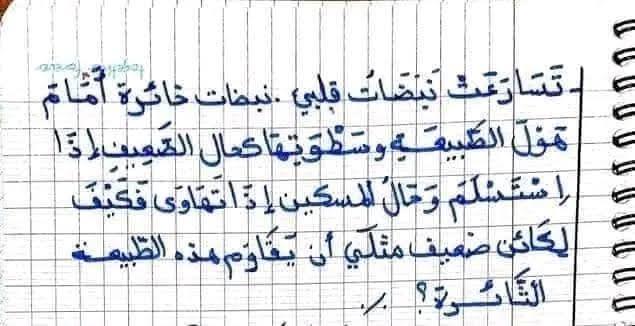 - تَسَارَعَتْ نَبَضَاتُ قلبي. نبضات خائرة أَمَامَ
هَوْلَ الطَّبِيعَةِ وسَطْوَتِهَا كحال الضَّعِيفِ إذَا
اِسْتَسْلَمَ وَحَالُ المسكين إذَا تَهَاوَى فَكَيْفَ
لِكَائن ضعيف مثلي أن يُقَاوِم هذه الطَّبيعة
الثَّائِرة؟ ./.